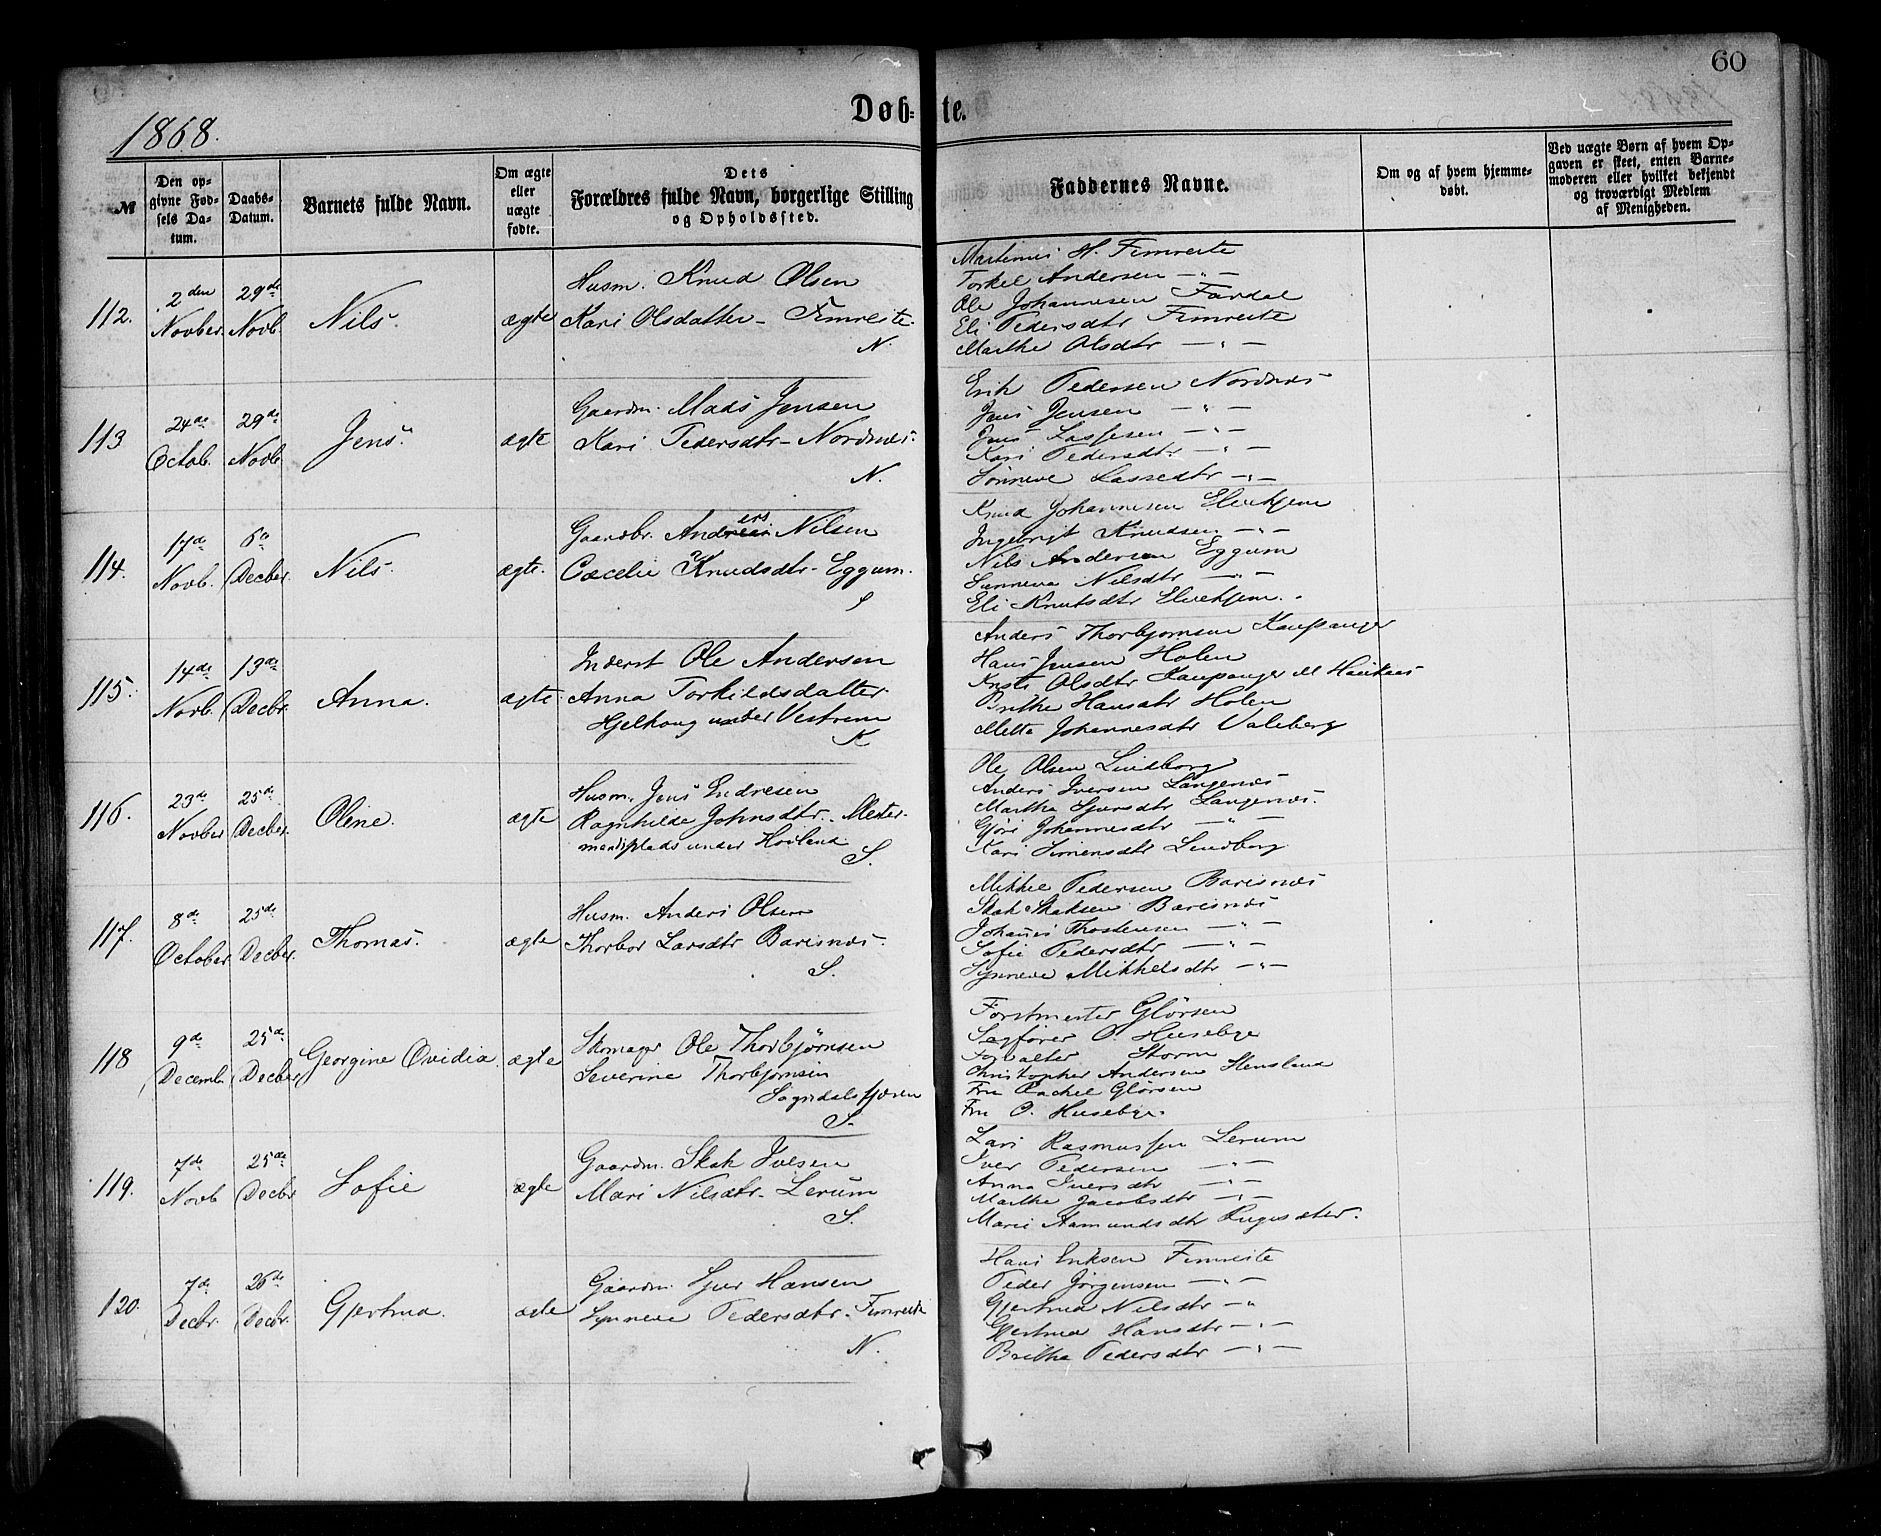 60
Døbte.
1868.
№
Den opgivne Fødsels Datum.
Daabs-Datum.
Barnets fulde Navn.
Om ægte eller uægte fødte.
Dets Forældres fulde Navn, borgerlige Stilling og Opholdssted.
Faddernes Navne.
Om og af hvem hjemmedøbt.
Ved uægte Børn af hvem Opgaven er skeet, enten Barnemoderen eller hvilket bekjendt og troværdigt Medlem af Menigheden.
112. 2den Novber 29de Novb. Nils. ægte
Husm. Knud Olsen
Kari Olsdatter - Fimreite.
N.
Martinus H. Fimreite
Torkel Andersen — " —
Ole Johannesen Fardal
Eli Pedersdtr Fimreite
Marthe Olsdtr — " —
113 24de Octob. 29de Novb. Jens. ægte
Gaardm. Mads Jensen
Kari Pedersdtr - Nordnæs.
N.
Erik Pedersen Nordnæs
Jens Jensen — " —
Jens Lassesen — " —
Kari Pedersdtr — " —
Sønneve Lassedtr — " —
114. 17de Novb. 6te Decber. Nils. ægte.
Gaardbr. Anders Nilsen
Cæcelie Knudsdtr - Eggum.
S
Knud Johannesen
Ingebrigt Knudsen — " —
Nils Andersen Eggum
Sunneva Nilsdtr — " —
Eli Knutsdtr
115. 14de Novb. 13de Decbr. Anna. ægte
Inderst Ole Andersen
Anna Torkildsdatter
Hjelhaug under Vestrem
K
Anders Thorbjørnsen Kaupanger
Hans Jensen Holen
Kristi Olsdtr Kaupanger
Brithe Hansdtr Holen
Mette Johannesdtr Valeberg
116. 23de Novber 25de Decber. Oline. ægte
Husm. Jens Endresen
Ragnhilde Johnsdtr. Mester-
mandsplads under Hovland
S.
Ole Olsen Lindborg
Anders Iversen Langenæs
Marthe Sjursdtr Langenæs.
Gjøri Johannesdtr — " —
Kari Simensdtr Lindborg
117. 8de October 25de Decber. Thomas. ægte
Husm. Anders Olsen
Thorbor Larsdtr Barisnæs.
S.
Mikkel Pedersen Barisnæs
Skak Skaksen Barisnæs
Johannes Thostensen — " —
Sofie Pedersdtr — " —
Synneve Mikkelsdtr — " —
118 9de Decembr. 25de Decber Georgine Ovidia. ægte
Skomager Ole Thorbjørnsen
Severine Thorbjørnsen
Sogndalsfjæren
S.
Forstmester Glörsen
Sagfører O. Husebye
Forvalter Storm
Christopher Andersen Stensland
Fru Rachel Glörsen
Fru O. Husebye.
119. 7de Novb 25de Decbr Sofie ægte
Gaardm. Skak Iversen
Mari Nilsdtr - Lerum
S.
Lars Rasmussen Lerum
Iver Pedersen — " —
Anna Iversdtr — " —
Marthe Jacobsdtr — " —
Marie Aamundsdtr
120. 7de Decbr. 26de Decbr. Gjertrud. ægte
Gaardm. Sjur Hansen
Synneve Pedersdtr - Fimreite
N.
Hans Eriksen Fimreite
Peder Jørgensen — " —
Gjertrud Nilsdtr — "
Gjertrud Hansdtr — " —
Brithe Pedersdtr — " —